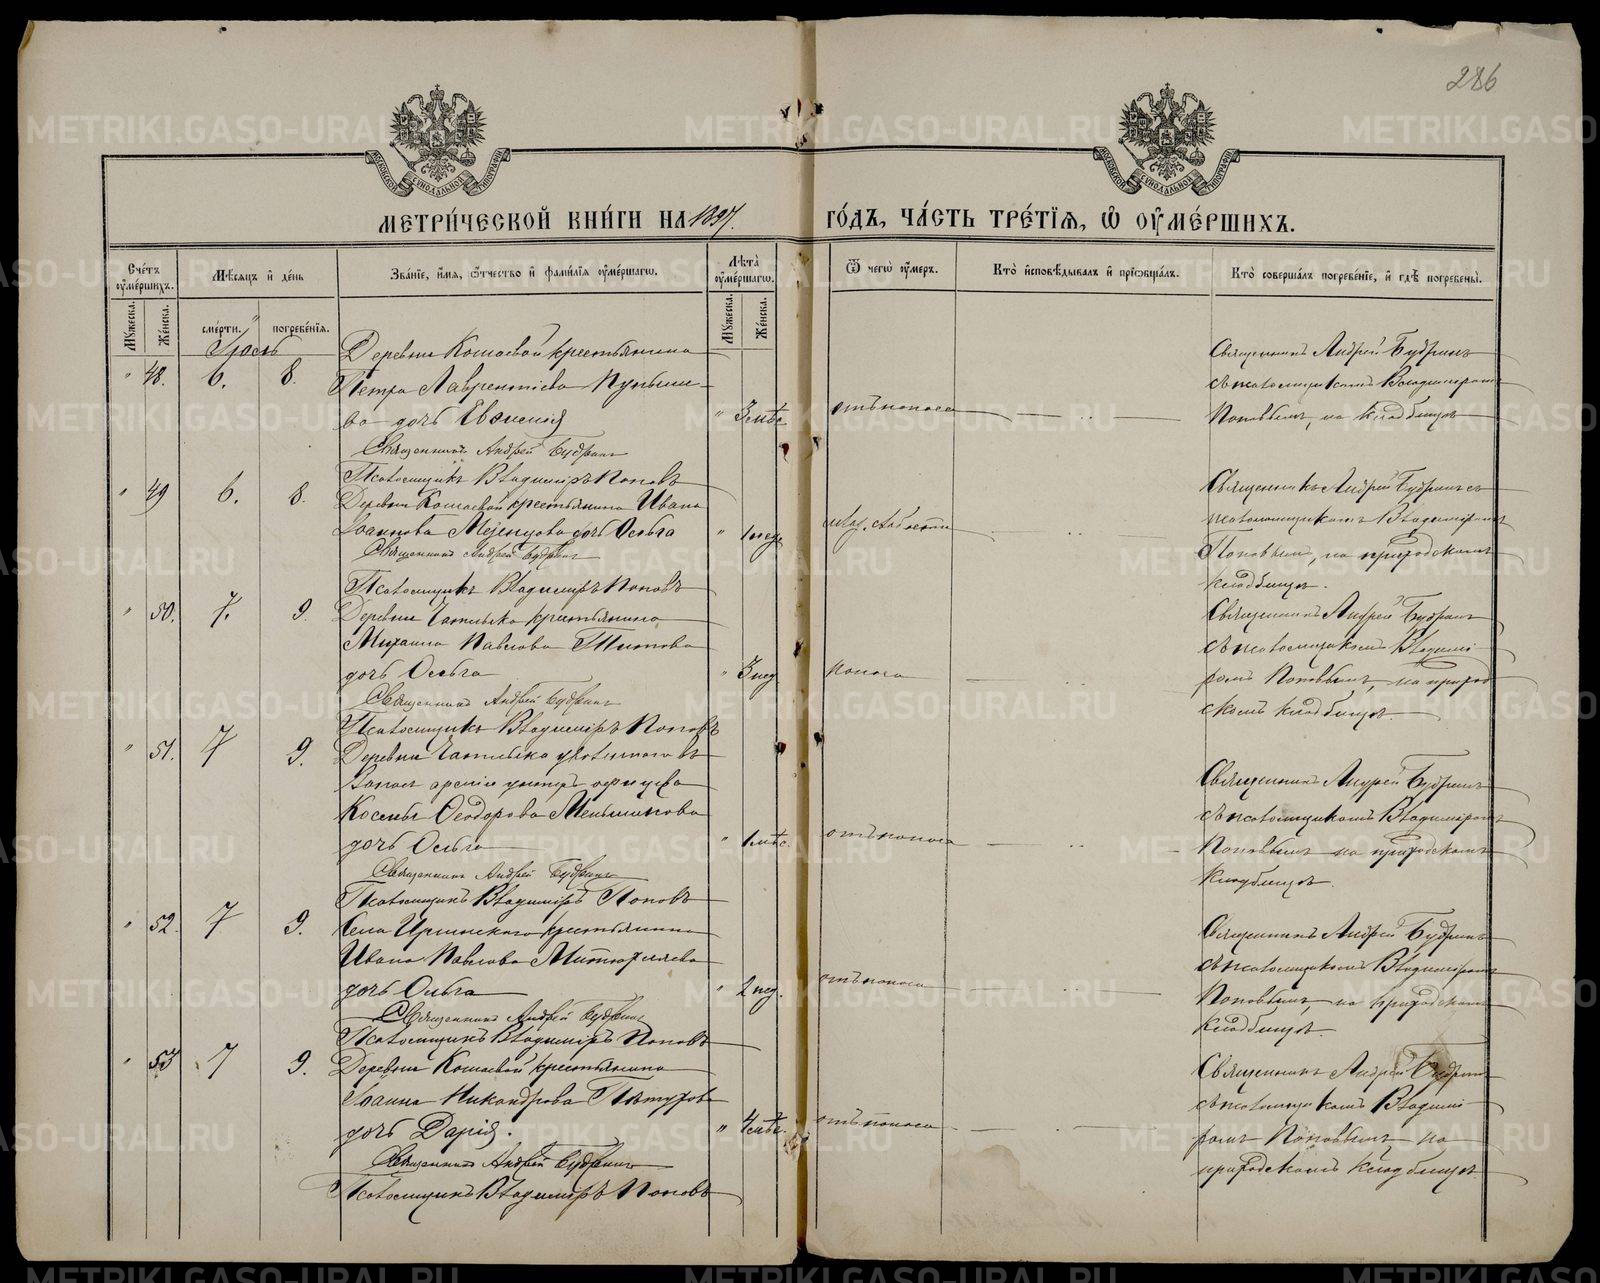 286
МЕТРИ́ЧЕСКОЙ КНИ́ГИ НА 1897. ГО́ДЪ, ЧА́СТЬ ТРЕ́ТІѦ, Ѽ ОУ҆МЕ́РШИХЪ.
Сче́тъ оу҆ме́ршихъ.
Мѣ́сѧцъ и҆ де́нь
Зва́нїе, и҆́мѧ, ѻ҆́тчество и҆ фами́лїѧ оу҆ме́ршагѡ.
Лѣ́та оу҆ме́ршагѡ.
Ѿ чегѡ̀ оу҆́меръ.
Кто̀ и҆сповѣ́дывалъ и҆ прїѡбща́лъ.
Кто̀ соверша́лъ погребе́нїе, и҆ гдѣ̀ погребены̀.
Мꙋ́жеска. Же́нска.
сме́рти. погребе́нїѧ.
Мꙋ́жеска. Же́нска.
Іюль
" 48. 6. 8.
Деревни Кошаевой крестьянина
Петра Лаврентіева
ва дочь Евгенія
" 3 мѣс.
отъ поноса
Священникъ Андрей Будринъ
съ псаломщикомъ Владиміромъ
Поповымъ, на кладбищѣ
Священникъ Андрей Будринъ
Псаломщикъ Владиміръ Поповъ
" 49 6. 8.
Деревни Кошаевой крестьянина Ивана
Іоаннова дочь Ольга
" 1 нед.
слабости
Священникъ Андрей Будринъ съ
псаломщикомъ Владиміромъ
Поповымъ, на приходскомъ
кладбищѣ.
Священникъ Андрей Будринъ
Псаломщикъ Владиміръ Поповъ
" 50. 7. 9.
Деревни крестьянина
Михаила Павлова Титова
дочь Ольга
" 3 нед
поноса
Священникъ Андрей Будринъ
съ псаломщикомъ Владимі
ромъ Поповымъ, на приход
скомъ кладбищѣ.
Священникъ Андрей Будринъ
Псаломщикъ Владиміръ Поповъ
" 51. 7 9.
Деревни уволеннаго въ
Запасъ арміи унтеръ офицера
Ѳеодорова Меньшикова
дочь Ольга
" 1 мѣс.
отъ поноса
Священникъ Андрей Будринъ
съ псаломщикомъ Владиміромъ
Поповымъ на приходскомъ
кладбищѣ.
Священникъ Андрей Будринъ
Псаломщикъ Владиміръ Поповъ
" 52. 7 9.
Села крестьянина
Ивана Павлова Митрофанова
дочь Ольга
" 2 нед.
отъ поноса
Священникъ Андрей Будринъ
съ псаломщикомъ Владиміромъ
Поповымъ, на приходскомъ
кладбищѣ.
Священникъ Андрей Будринъ
Псаломщикъ Владиміръ Поповъ
" 53 7 9.
Деревни Кошаевой крестьянина
Іоанна Никандрова Пѣтухова
дочь Дарія.
" 4 мѣс.
отъ поноса
Священникъ Андрей Будринъ
съ псаломщикомъ Владимі
ромъ Поповымъ на
приходскомъ кладбищѣ.
Священникъ Андрей Будринъ
Псаломщикъ Владиміръ Поповъ
METRIKI.GASO-URAL.RU